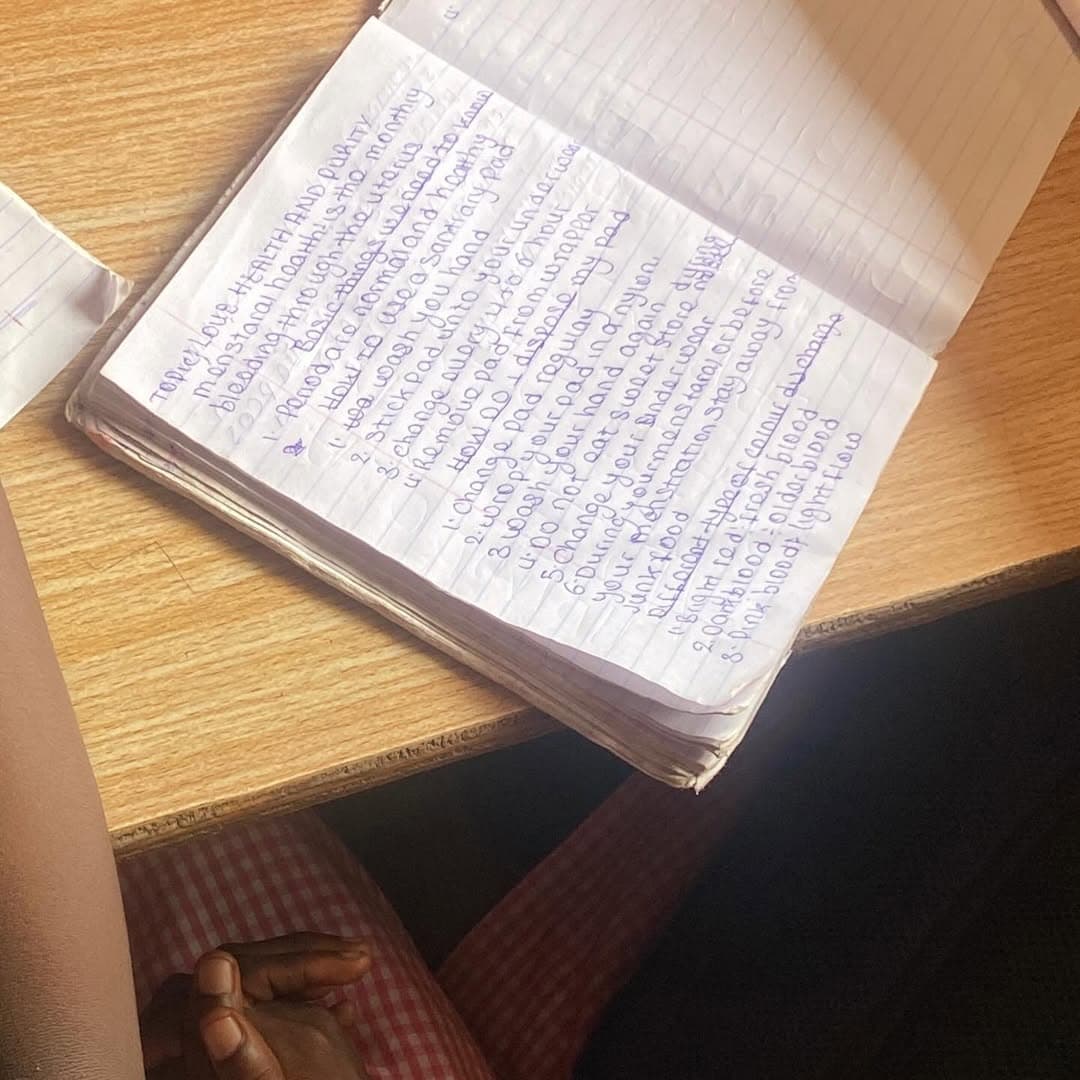 TOPIC; LOVE HEALTH AND PURITY
menstaral health is the monthly
bleeding through the utarus
Basic things we need to know
1. period are normal and healthy
How to use a sanitary pad
1. wash you hand
2. Stick pad unto your underwear
3. change every 4 to 6 hour
4. Remove pad from wrapper
How do i dispose my pad
1. Change pad regulay
2. Wrop your pad in a nylon
3. wash your hand again
4. Do not eat sweet
5. Change your underwear
6. During your menstration or before
your menstration stay away from
junk food
Different types of colour
1. Bright red : fresh blood
2. Dark blood : older blood
3. pink blood : light flow